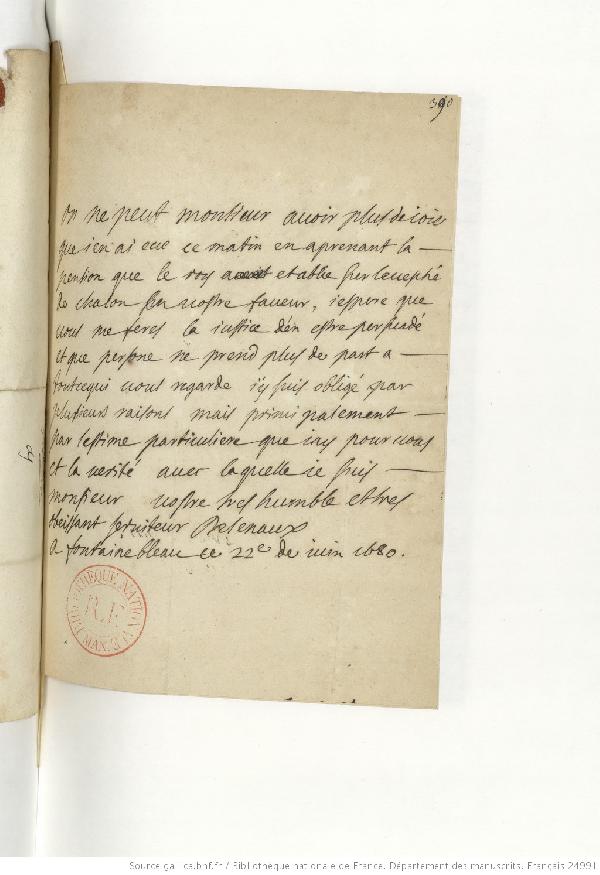 390
on ne peut monsieur auoir plus de ioie
que ien ai eue ce matin en aprenant la
pension que le roy a etablie sur leuesché
de chalon en vostre faueur, iespere que
vous me feres la iustice den estre persuadé
et que persone ne prend plus de part a
tout ce qui vous regarde iy suis obligé par
plusieurs raisons mais principalement
par lestime particuliere que iay pour vous
et la verité auec laquelle ie suis
monsieur vostre tres humble et tres
obeissant seruiteur
a fontainebleau ce 22e de iuin 1680.
BIBLIOTHEQUE NATIONALE
R.F.
MAN.
Source gallica.bnf.fr / Bibliothèque nationale de France. Département des manuscrits. Français 24991